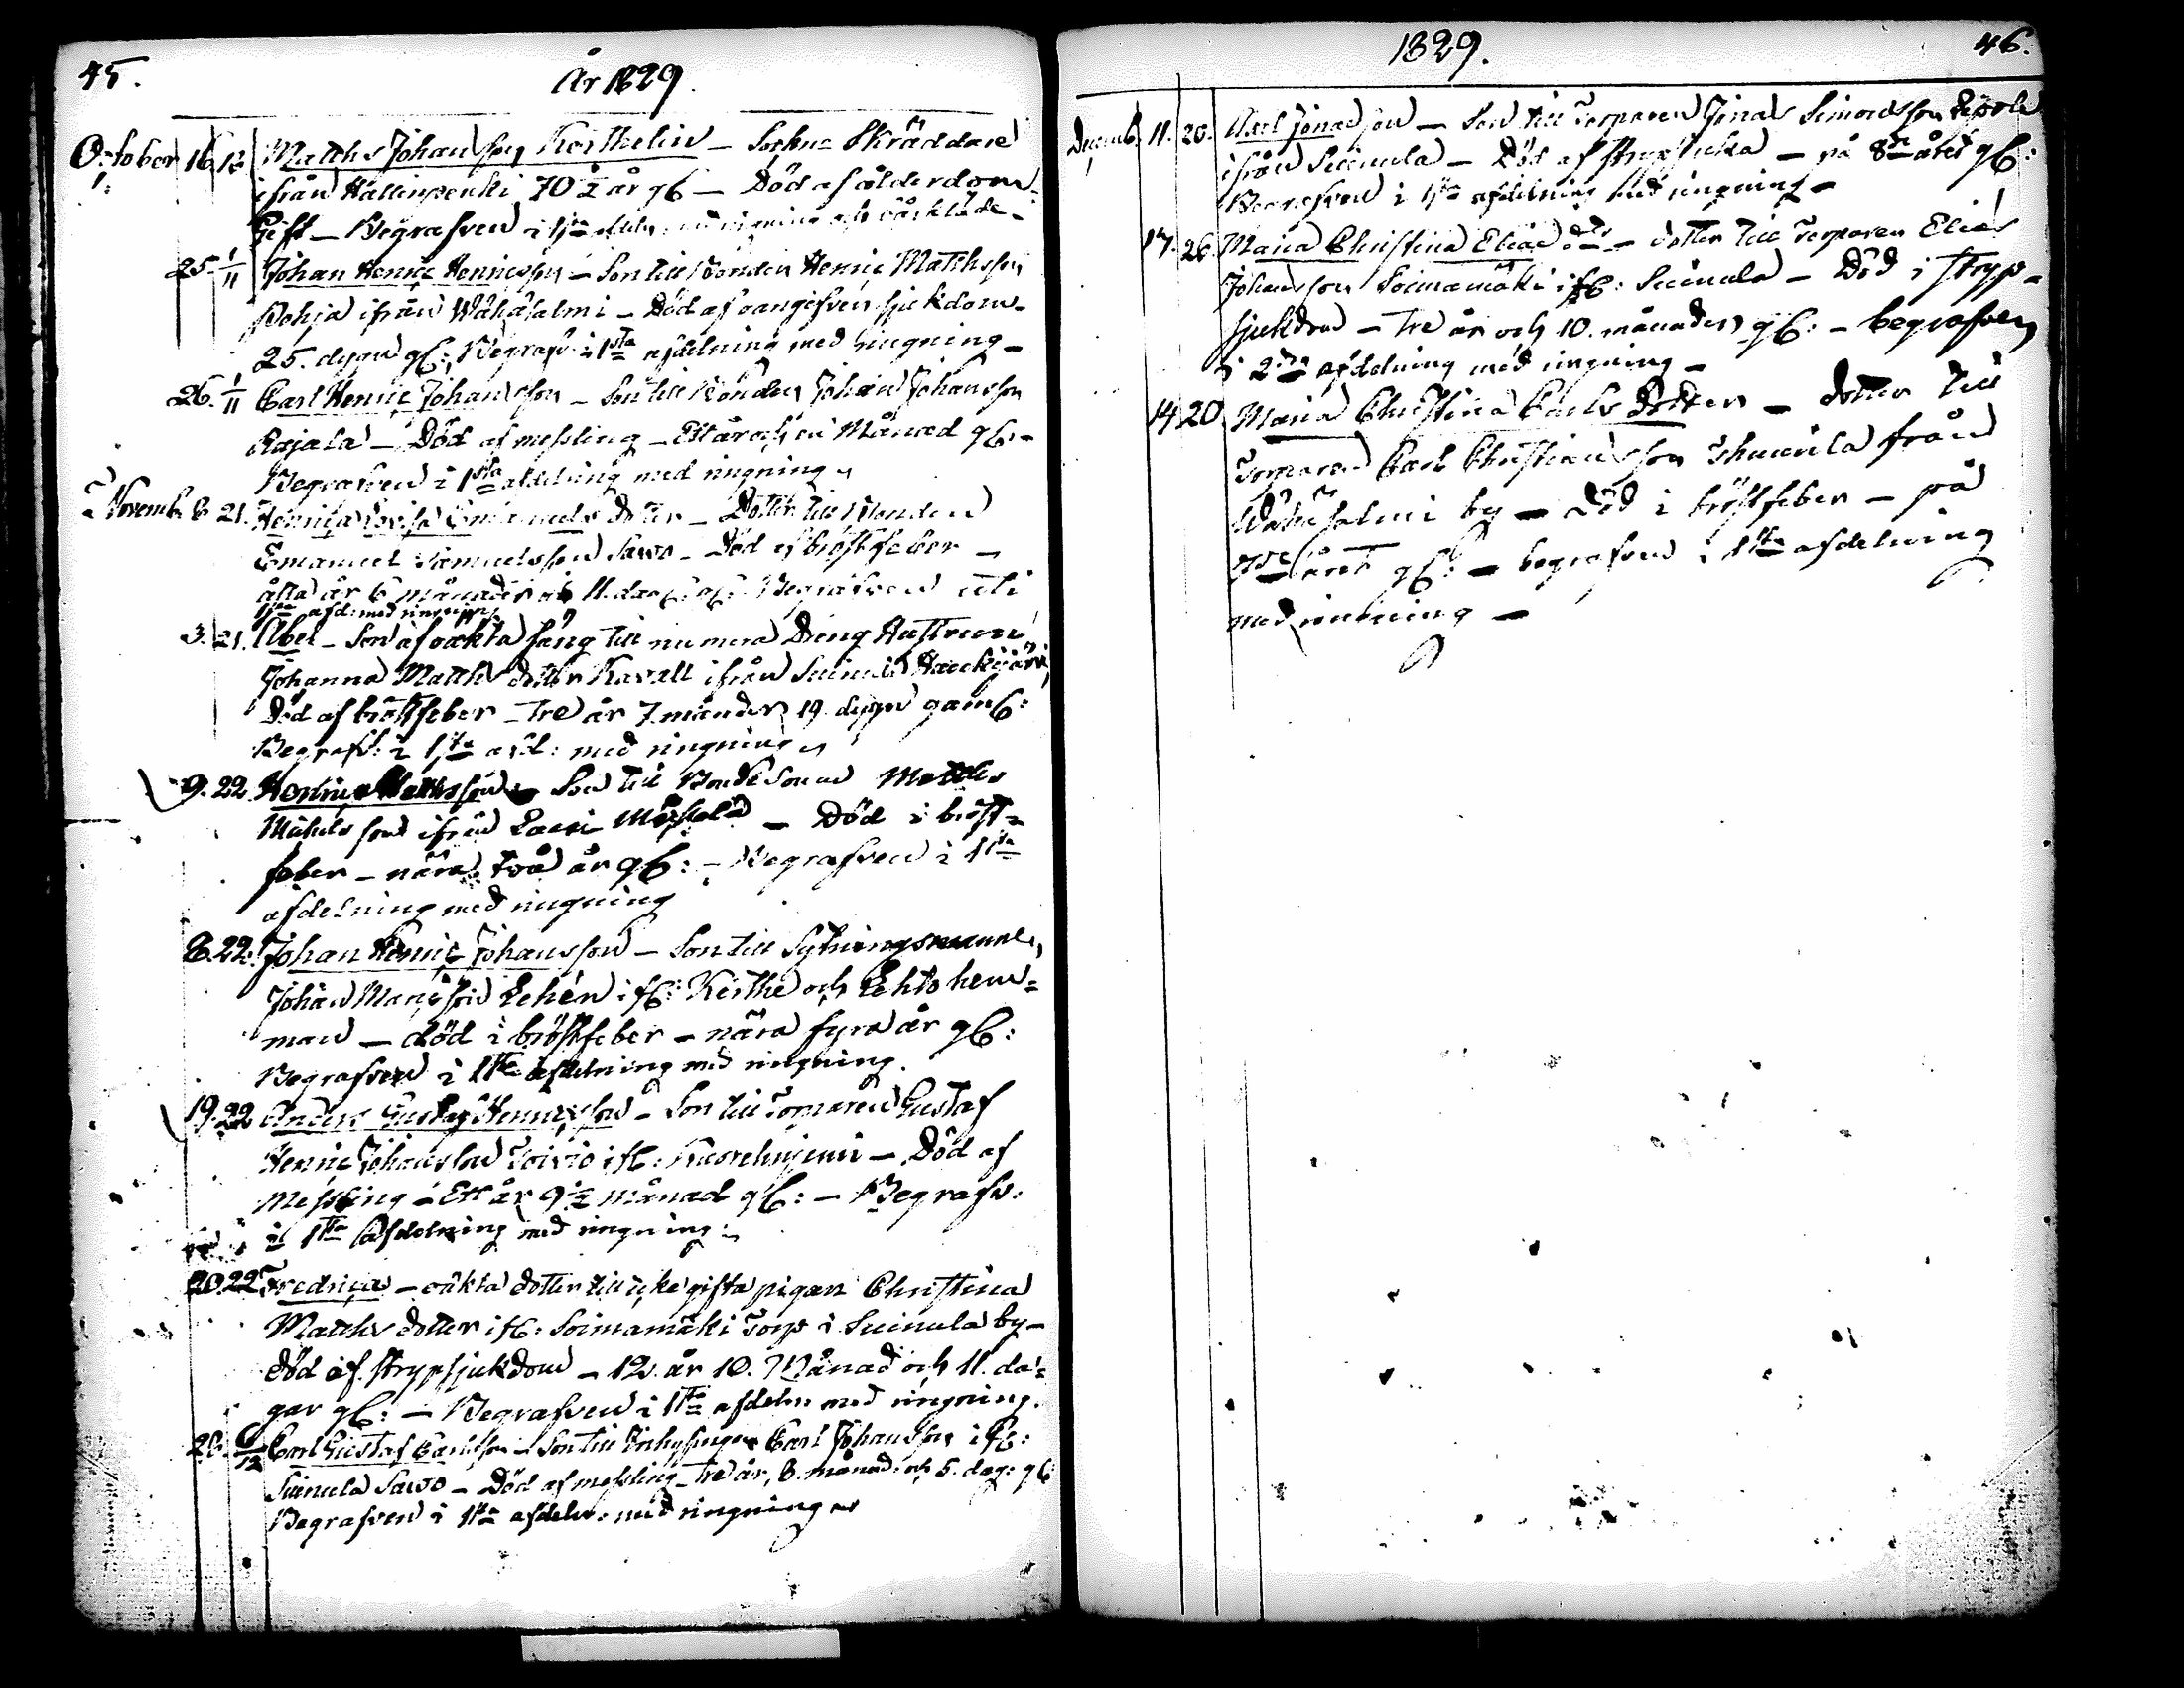 45.
År 1829.
October 16 18 Matths Johansson Korthelin – Sockne Skräddare
ifrån Hallinpenki 70 ½ år gl: – Död af ålderdom
Gift – Begrafven i 1sta afdeln: med ringning och bårkläde –
25. 1/11 Johan Henric Henricsson – Son till Bonden Henric Mathsson
Pohja ifrån Wähäsalmi – Död af oangifven sjukdom –
25. dygn gl: Begrafv: i 1sta afdelning med ringning –
26. 1/11 Carl Henric Johansson – Son till Bonden Johan Johansson
Rajala – Död af messling – Ett år och en Månad gl: –
Begrafven i 1sta afdelning med ringning
Novemb. 8 21. Henrica Lovisa Emanuels dotter – Dotter till Bonden
Emanuel Samuelsson Sawo – Död af bröstfeber –
åtta år 6 månader och 11. dag: gl: Begrafven uti
1sta afd: med ringning
3. 21. Abel – Son af oäkta säng till numera Dräng Hustrun
Johanna Matths dotter Kavall ifrån Suinula
Död af bröstfeber – Tre år 7. månader 19. dygn gaml:
Begrafv: i 1sta afd: med ringning
9. 22. Henric Mattsson – Son till Bonde Sonen Matths
Michelsson ifrån – Död i bröst=
feber – nära två år gl: – Begrafven i 1sta
afdelning med ringning
8. 22. Johan Henric Johansson – Son till Sytningsmannen
Johan Lehén ifr: Kerthe och Lehto hem=
man – död i bröstfeber – nära fyra år gl:
Begrafven i 1sta afdelning med ringning.
19. 22 Anders Gustaf Henricsson – Son till Torparen Gustaf
Henric Johansson Toivio ifr: Kuoreniemi – Död af
Messling – Ett år 9½ månad gl: – Begrafv:
i 1sta afdelning med ringning:
20. 22 Fredrica – oäkta dotter till icke gifta pigan Christina
Matths dotter ifr: Soimamäki Torp i Suinula by –
död af strypsjukdom – 12. år 10. Månad och 11. da=
gar gl: – Begrafven i 1sta afdeln: med ringning.
28. 6/12 Carl Gustaf Carlsson – Son till Inhysingen Carl Johansson ifr:
Suinula Sawo – Död af messling – Tre år, 8. månad: och 5. dag: gl:
Begrafven i 1sta afdeln: med ringning
1829.
46.
Decemb. 11. 20. Axel Jonasson – Son till Torparen Jonas Simonsson
ifrån Suinula – Död af strypsjuka – på 8de året gl:
Begrafven i 1sta afdelning med ringning –
17. 26. Maria Christina Elias dtr – dotter till Torparen Elias
Johansson Soimamäki ifr: Suinula – Död i stryp=
sjukdom – Tre år och 10. månader gl: – begrafven
i 2dra afdelning med ringning –
14 20 Maria Christina Carls Dotter – dotter till
Torparen Carl Christiansson från
Wähäsalmi by – Död i bröstfeber – på
året gl: – begrafven i 1sta afdelning
med ringning –